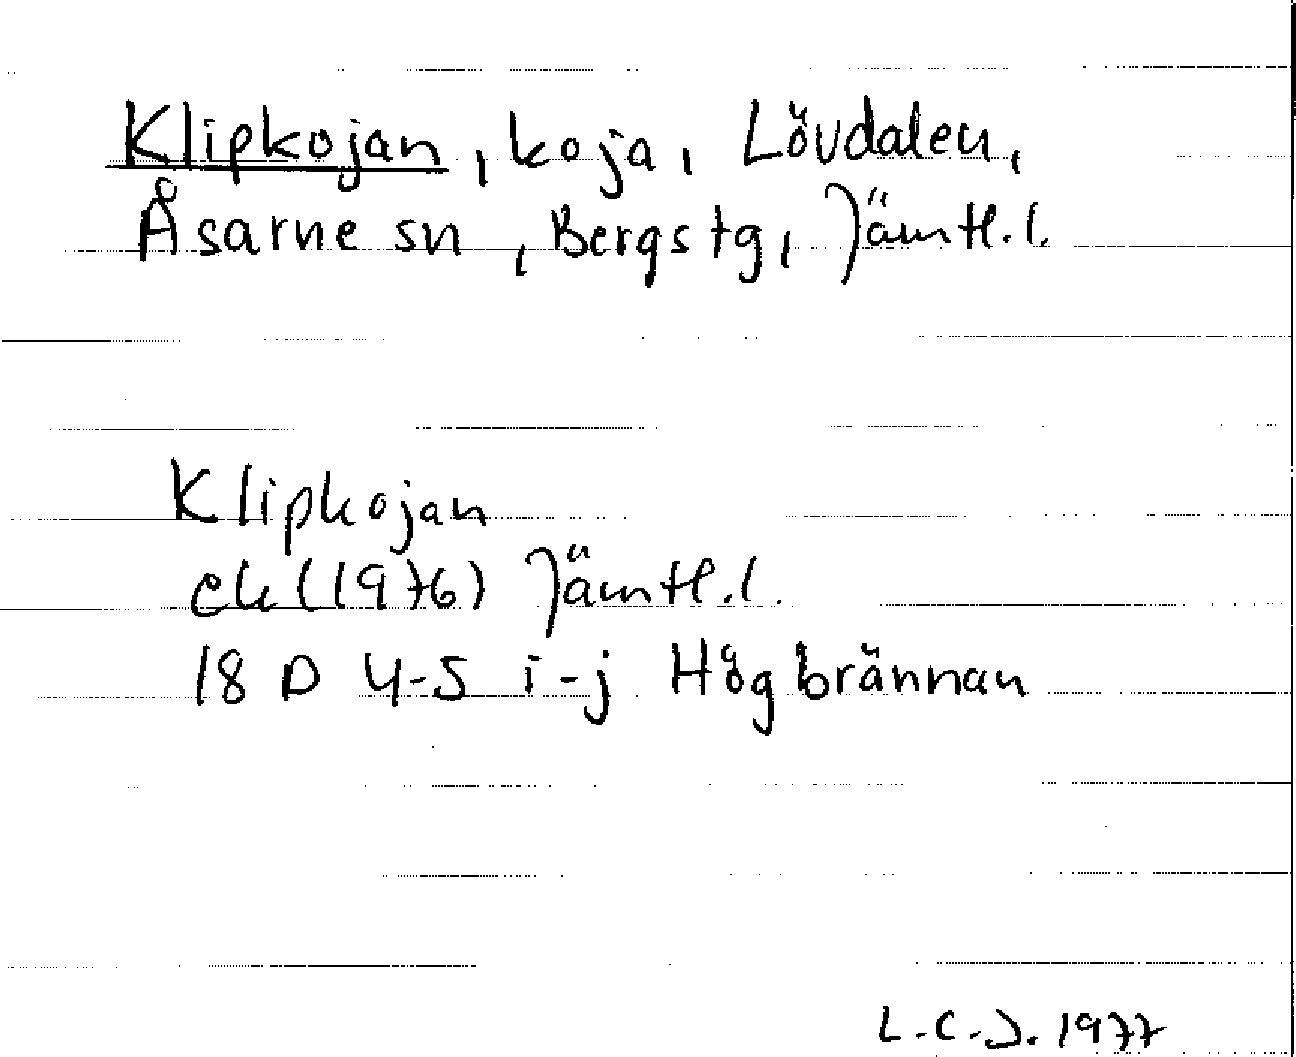 Klipkojan, koja, Lövdalen,
Åsarne sn, Bergs tg, Jämtl.l.
Klipkojan
ek (1976) Jämtl.l.
18 D 4-5 i-j Högbrännan
L.C.J. 1977